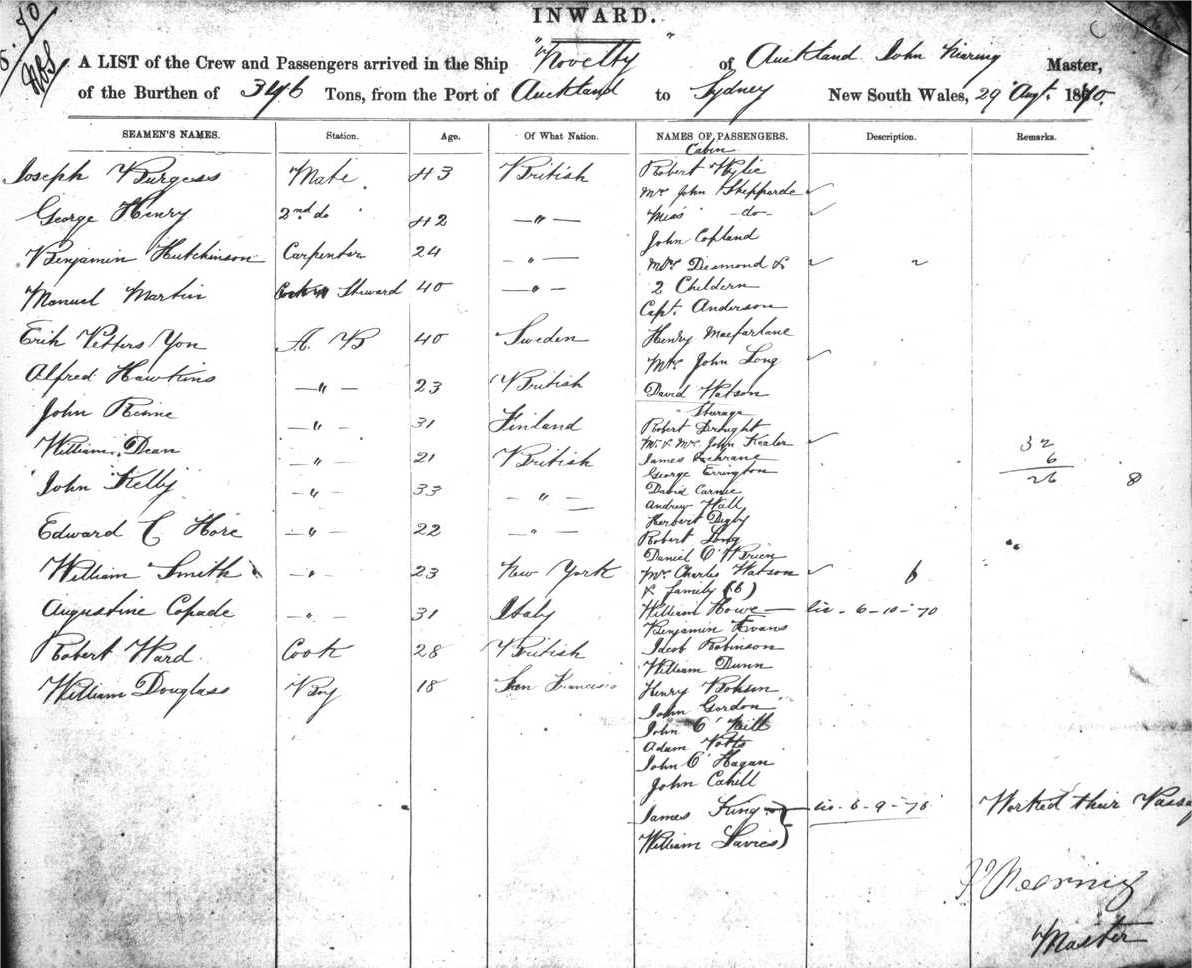 INWARD.
A LIST of the Crew and Passengers arrived in the Ship "Novelty" of Auckland John Nearing Master,
of the Burthen of 346 Tons, from the Port of Auckland to Sydney New South Wales, 29 Augt. 1870.
SEAMEN'S NAMES. Station. Age. Of What Nation. NAMES OF PASSENGERS. Description. Remarks.
Cabin
Joseph Burgess Mate 43 British Robert Wylie
Mrs John Shepparde ✓
George Henry 2nd do 42 —"— Miss —do— ✓
John Copland
Benjamin Hutchinson Carpenter 24 —"— Mrs Desmond & ✓
Manuel Martin Steward 40 —"— 2 Childern
Capt. Anderson
Erik Petters Yon A. B 40 Sweden Henry Macfarlane
Mrs John Long ✓
Alfred Hawkins —"— 23 British David Watson
Sturage
John —"— 31 Finland Robert Drought
Mr & Mrs John Kealer ✓ 32
William Dean —"— 21 British James Cochrane 6
George Errington 26 8
John Kelly —"— 33 —"— David Carnie
Andrew Hall
Herbert Digby
Edward C Hore —"— 22 —"— Robert Long
Daniel O'Brien
William Smith —"— 23 New York Mr Charles Watson ✓ 6
& family (6)
Augustine Copade —"— 31 Italy William Howe — lic - 6-10-70
Benjamin Evans
Robert Ward Cook 28 British Jacob Robinson
William Dunn
William Douglass Boy 18 San Francisco Henry
John Gordon
John O'Neill
Adam Potts
John O'Hagan
John Cahill
James King lic - 6-9-70 Worked their Passa
William Davies
J Nearing
Master